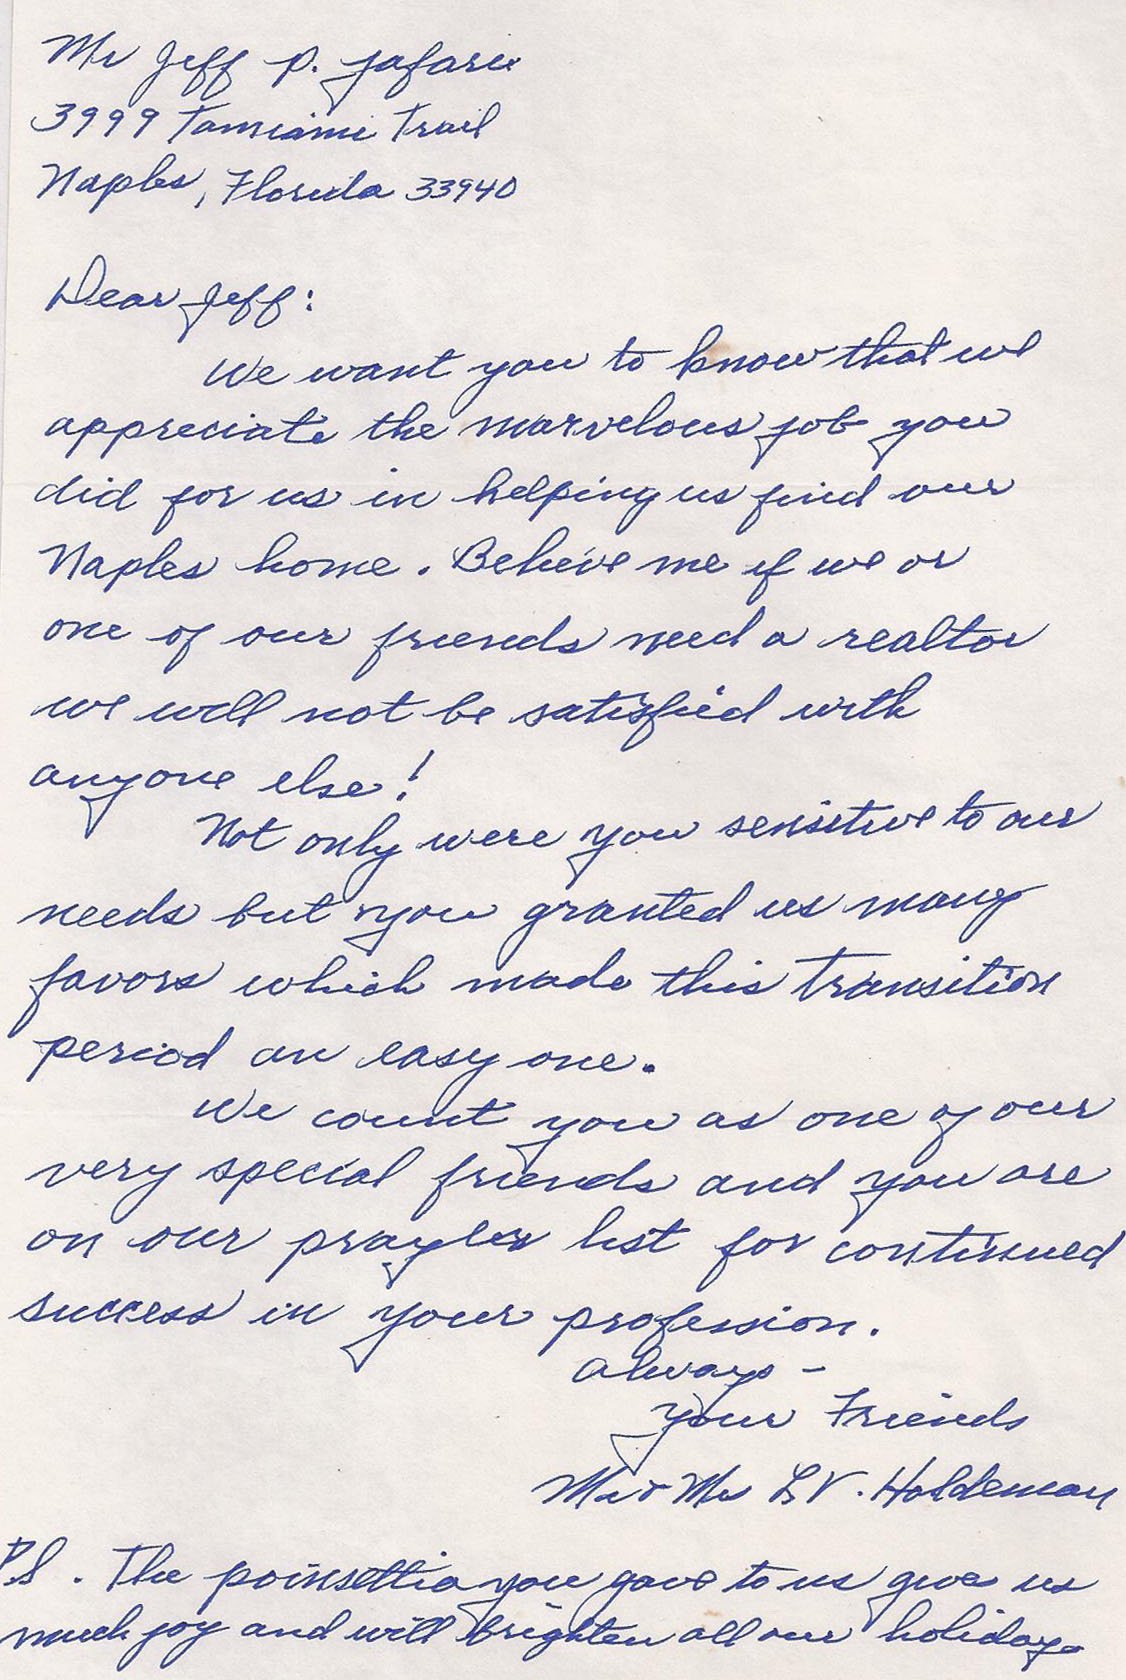 Mr Jeff P. Jafari
3999 Tamiami Trail
Naples, Florida 33940
Dear Jeff:
We want you to know that we
appreciate the marvelous job you
did for us in helping us find our
Naples home. Believe me if we or
one of our friends need a realtor
we will not be satisfied with
anyone else!
Not only were you sensitive to our
needs but you granted us many
favors which made this transition
period an easy one.
We count you as one of our
very special friends and you are
on our prayer list for continued
success in your profession.
Always -
Your Friends
Mr & Mrs L V. Holdeman
P.S. The poinsettia you gave to us gives us
much joy and will brighten all our holidays